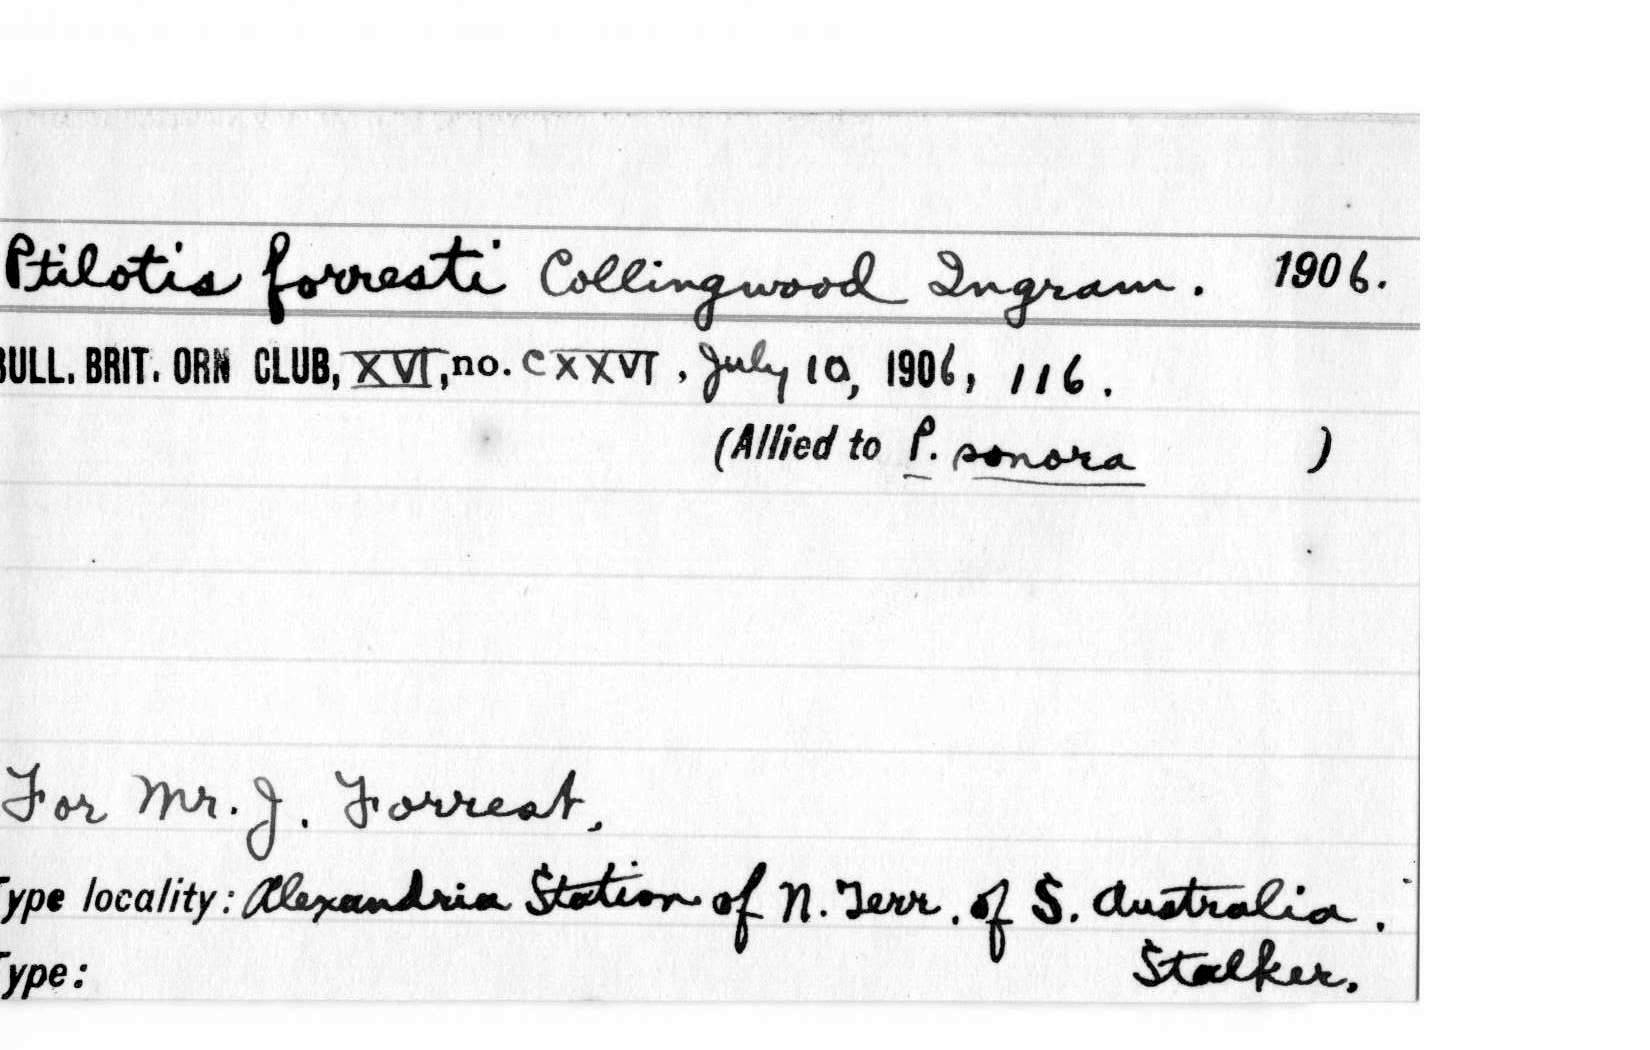 Ptilotis forresti Collingwood Ingram. 1906.
BULL. BRIT. ORN CLUB, XVI, no. CXXVI, July 10, 1906, 116.
(Allied to P. sonora )
For Mr. J. Forrest.
Type locality: Alexandria Station of N. Terr. of S. Australia.
Stalker.
Type: